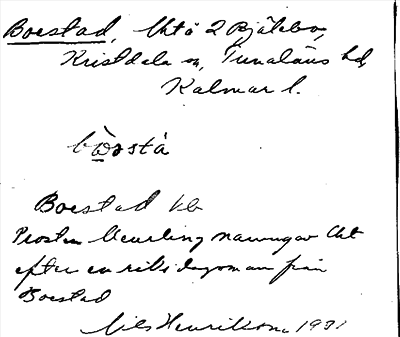 Boestad, Utä 2 Bjälebo,
Kristdala sn, Tunaläns hd,
Kalmar l.
bωostà
Boestad kb
Prosten Meurling namngav Utä
efter en riksdagsman från
Boestad
Nils Henrikson 1931